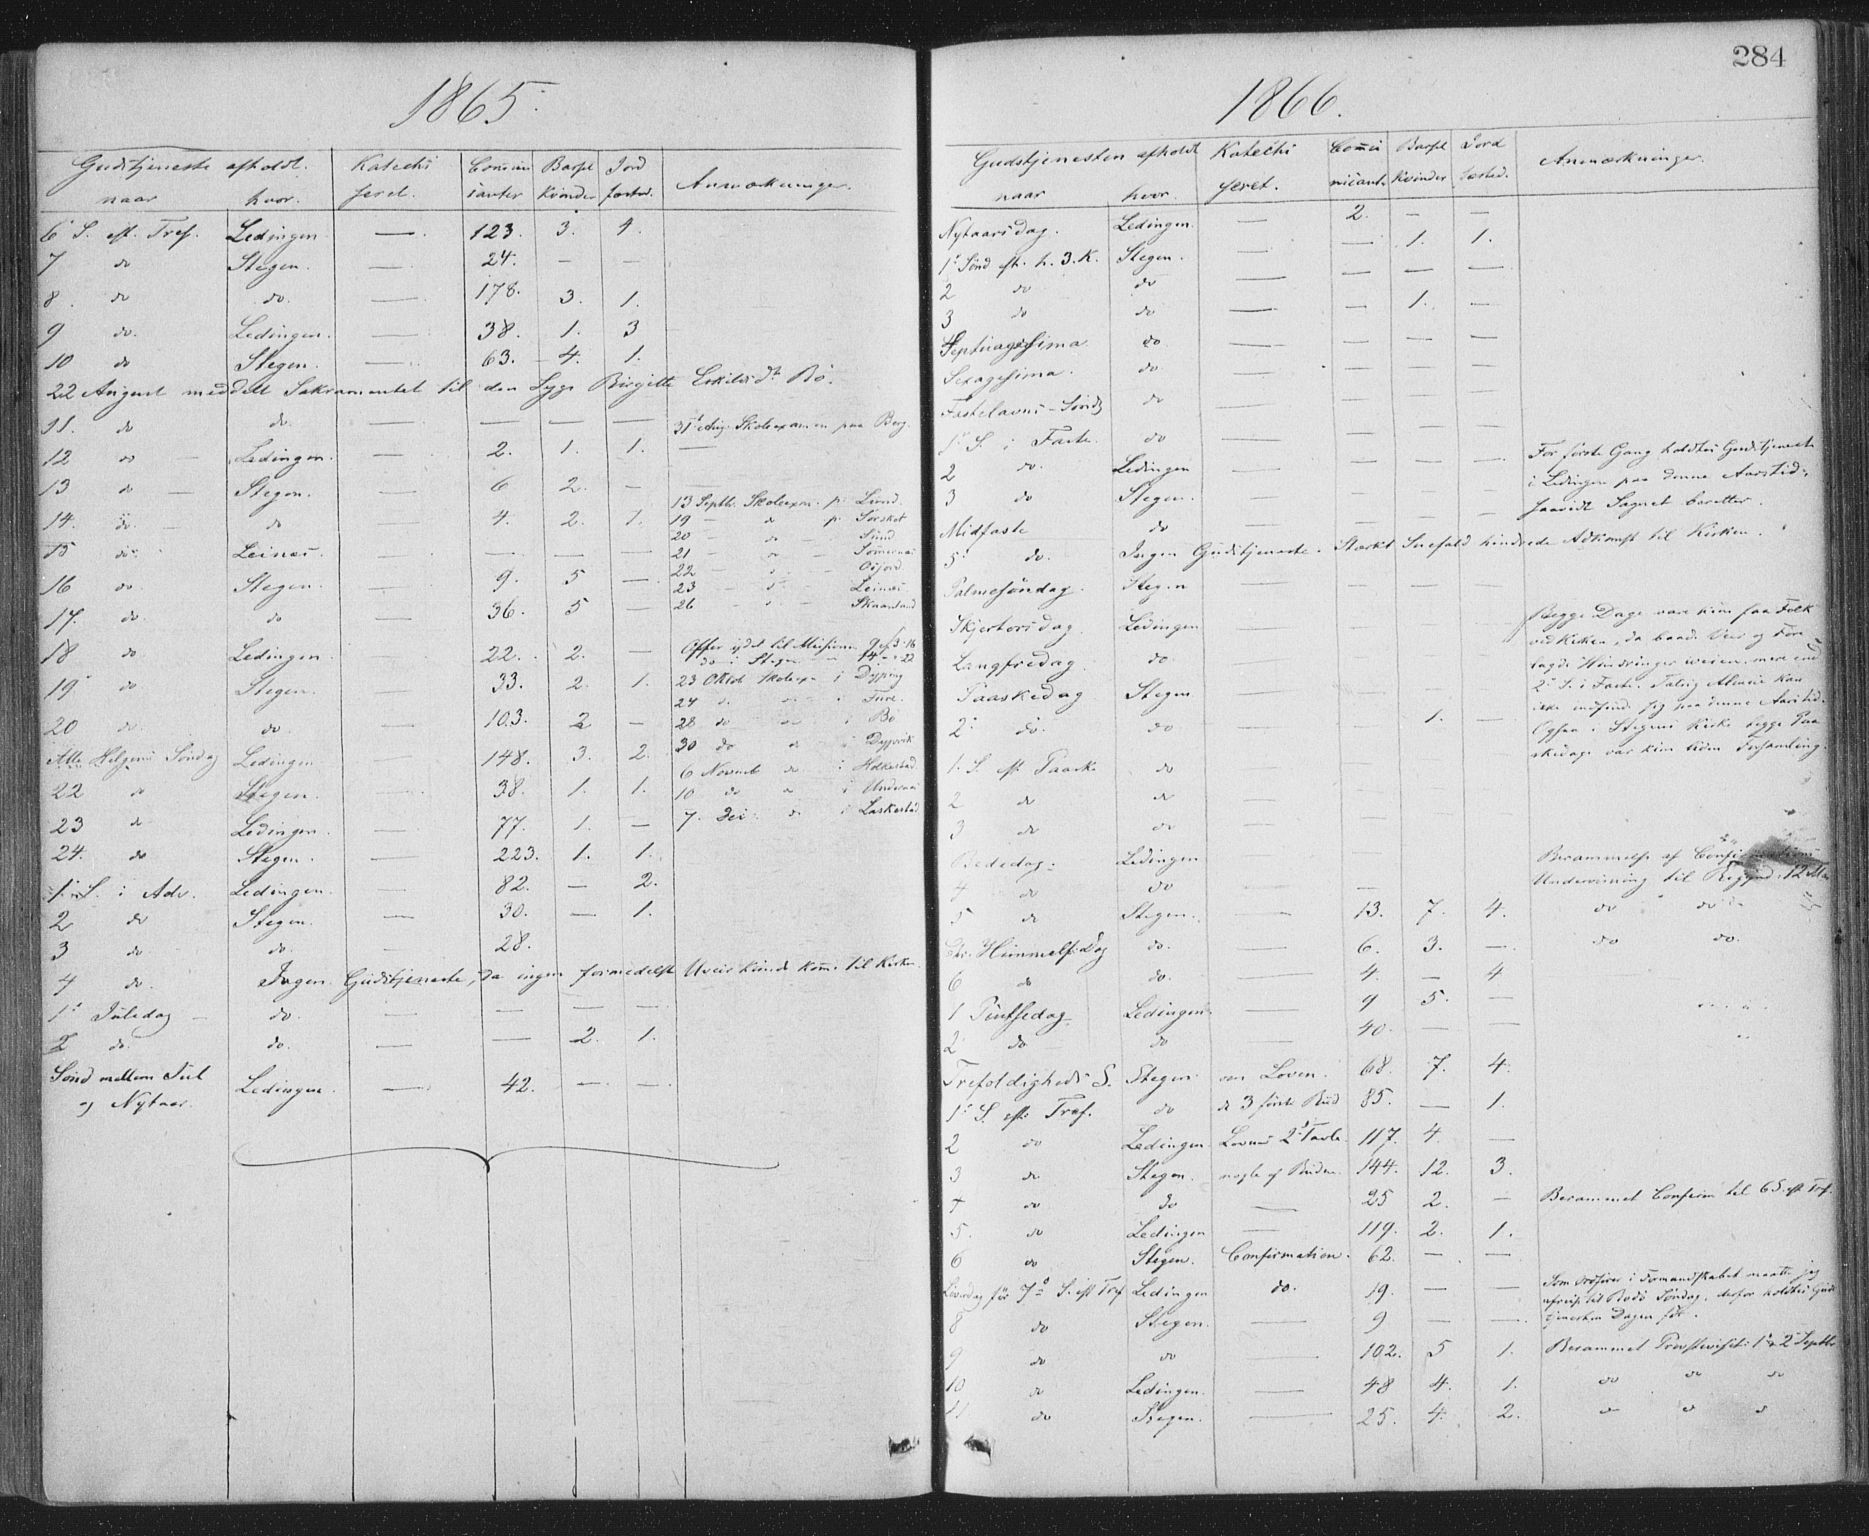 1865.
Gudstjeneste afholdt. Katechi Commu Barsel Jord Anmærkninger.
naar hvor. seret. icanter Kvinder fæsted.
6 S. eft. Tref. Ledingen — 123. 3. 4.
7 do Stegen. — 24. — —
8. do do. — 178. 3. 1.
9 do. Ledingen. — 38. 1. 3
10 do Stegen. — 63. 4. 1.
22 August meddelt Sakramentet til den syge Birgitte Eskilsdt Bö.
11. do do. — — — — 31 Aug. Skoleexamen paa Berg.
12 do Ledingen. — 2. 1. 1. —
13 do Stegen. — 6 2. —
13 Septbr. Skoleexm. p.
14. do. do — 4. 2. 1. 19 — do p.
20 — do Sund
15 do. Leines. — — — — 21 do
22
16 do. Stegen. — 9. 5 — 23 Leines
17. do. do — 36. 5 — 26 Skaanland
18 do. Ledingen — 22. 2. — Offer ydet til Missionen
do i Stegen
19 do Stegen. — 33. 2. 1. 23 Oktob. Skoleex. i Dypping
24 do. Fure.
20 do. do. — 103. 2 — 28 do Bö
Alle Helgens Söndag Ledingen — 148. 3. 2. 30 do do i Dypvik
22 do Stegen. — 38. 1. 1. 6 Novemb do i Holkestad.
10 do do i
23 do Ledingen. — 77. 1. — 7. Dec. do i Laskestad
24. do Stegen. — 223. 1. 1.
1. S. i Adv. Ledingen. — 82. — 2.
2 do Stegen. — 30. — 1.
3 do do. — 28.
4 do. Ingen Gudstjeneste, da ingen formedelst Uveir kunde kom. til Kirken.
1 Juledag — do. — — — —
2 do. do. — — 2. 1.
Sönd mellem Jul
og Nytaar. Ledingen. — 42. — —
284
1866.
Gudstjenesten afholdt Katechi Commu Barsel Jord Anmærkninger.
naar hvor. seret. nicant. Kvinder fæsted.
Nytaarsdag. Ledingen. — 2. — —
1 Sönd eft. h. 3. K. Stegen. — — 1. 1.
2 do do — — — —
3 do do — — 1. —
Septuagesima do — — — —
Sexagesima. do. — — — —
Fastelavns-Sönd. do — — — —
1 S. i Faste. do — — — — For förste Gang holdtes Gudstjeneste
2 do. Ledingen — — — — i Ledingen paa denne Aarstid,
3 do Stegen. — — — — saavidt Sagnet beretter.
Midfaste do — — — —
5 do. Ingen Gudstjeneste. Stærkt Snefald hindrede Adkomst til Kirken.
Palmesöndag. Stegen — — — —
Skjertorsdag Ledingen — — — — Begge Dage vare kun faa Folk
ved Kirken, da baade Veir og Före
Langfredag. do. — — — — lagde Hindringer iveien. mere end
Paaskedag Stegen — — — — 2 S. i Faste. Talrig Almue kan
ikke ventes jeg paa denne Aarstid.
2 do. do — — 1. — Ogsaa i Stegens Kirke begge Paa
skedage var kun liden Forsamling.
1. S. eft Paaske do — — — —
2 do do — — — —
3 do do — — — —
Bededag. Ledingen — — — — Berammelse af Confirmations
4 do do — — — — Undervisning til Begynd. 12 Mai
5 do Stegen. — 13. 7. 4. do do
Chr. Himmelf. Dag do. — 6. 3. — do do.
6 do do. — 4. — 4
1 Pintsedag. Ledingen. — 9 5. —
2 do do — 40. — —
Trefoldigheds S. Stegen. om Loven. 68. 7. 4.
1 S. eft. Tref. do de 3 förste Bud 85. — 1.
2 do Ledingen. Lovens 2 Tavle. 117. 4. —
3 do Stegen. nogle af Buden. 144. 12. 3.
4 do do — 25 2. — Berammet Confirm til 6 S. eft Tref.
5. do Ledingen — 119. 2. 1.
6 do Stegen. Confirmation. 62. — —
Löverdag för 7 S. eft Tref Ledingen do. 19. — — Som i Formandskabet maatte jeg
afreise til Bodö Söndag, derfor holdtes Guds
8 do Stegen. — 9 — — tjenesten Dagen för.
9 do do — 102. 5 1. Berammet Provstevisit. 1 & 2 Septbr
10 do Ledingen. — 48 4. 1. do do do
11 do Stegen. — 25. 4. 2. do do do